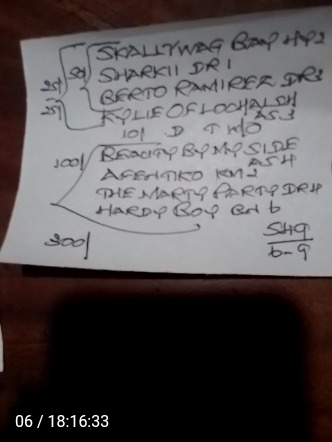 SKALLYWAG BAY HY2
SHARKII DR 1
BERTO RAMIREZ DR3
KYLIE OF LOCHALSH
AS 3
10/ D T W/O
100/ BEAUTY BY MY SIDE
AS 4
AFENTIKO KM2
THE MARTY PARTY DR4
HARDY BOY GN 6
300/
6-9
06 / 18:16:33